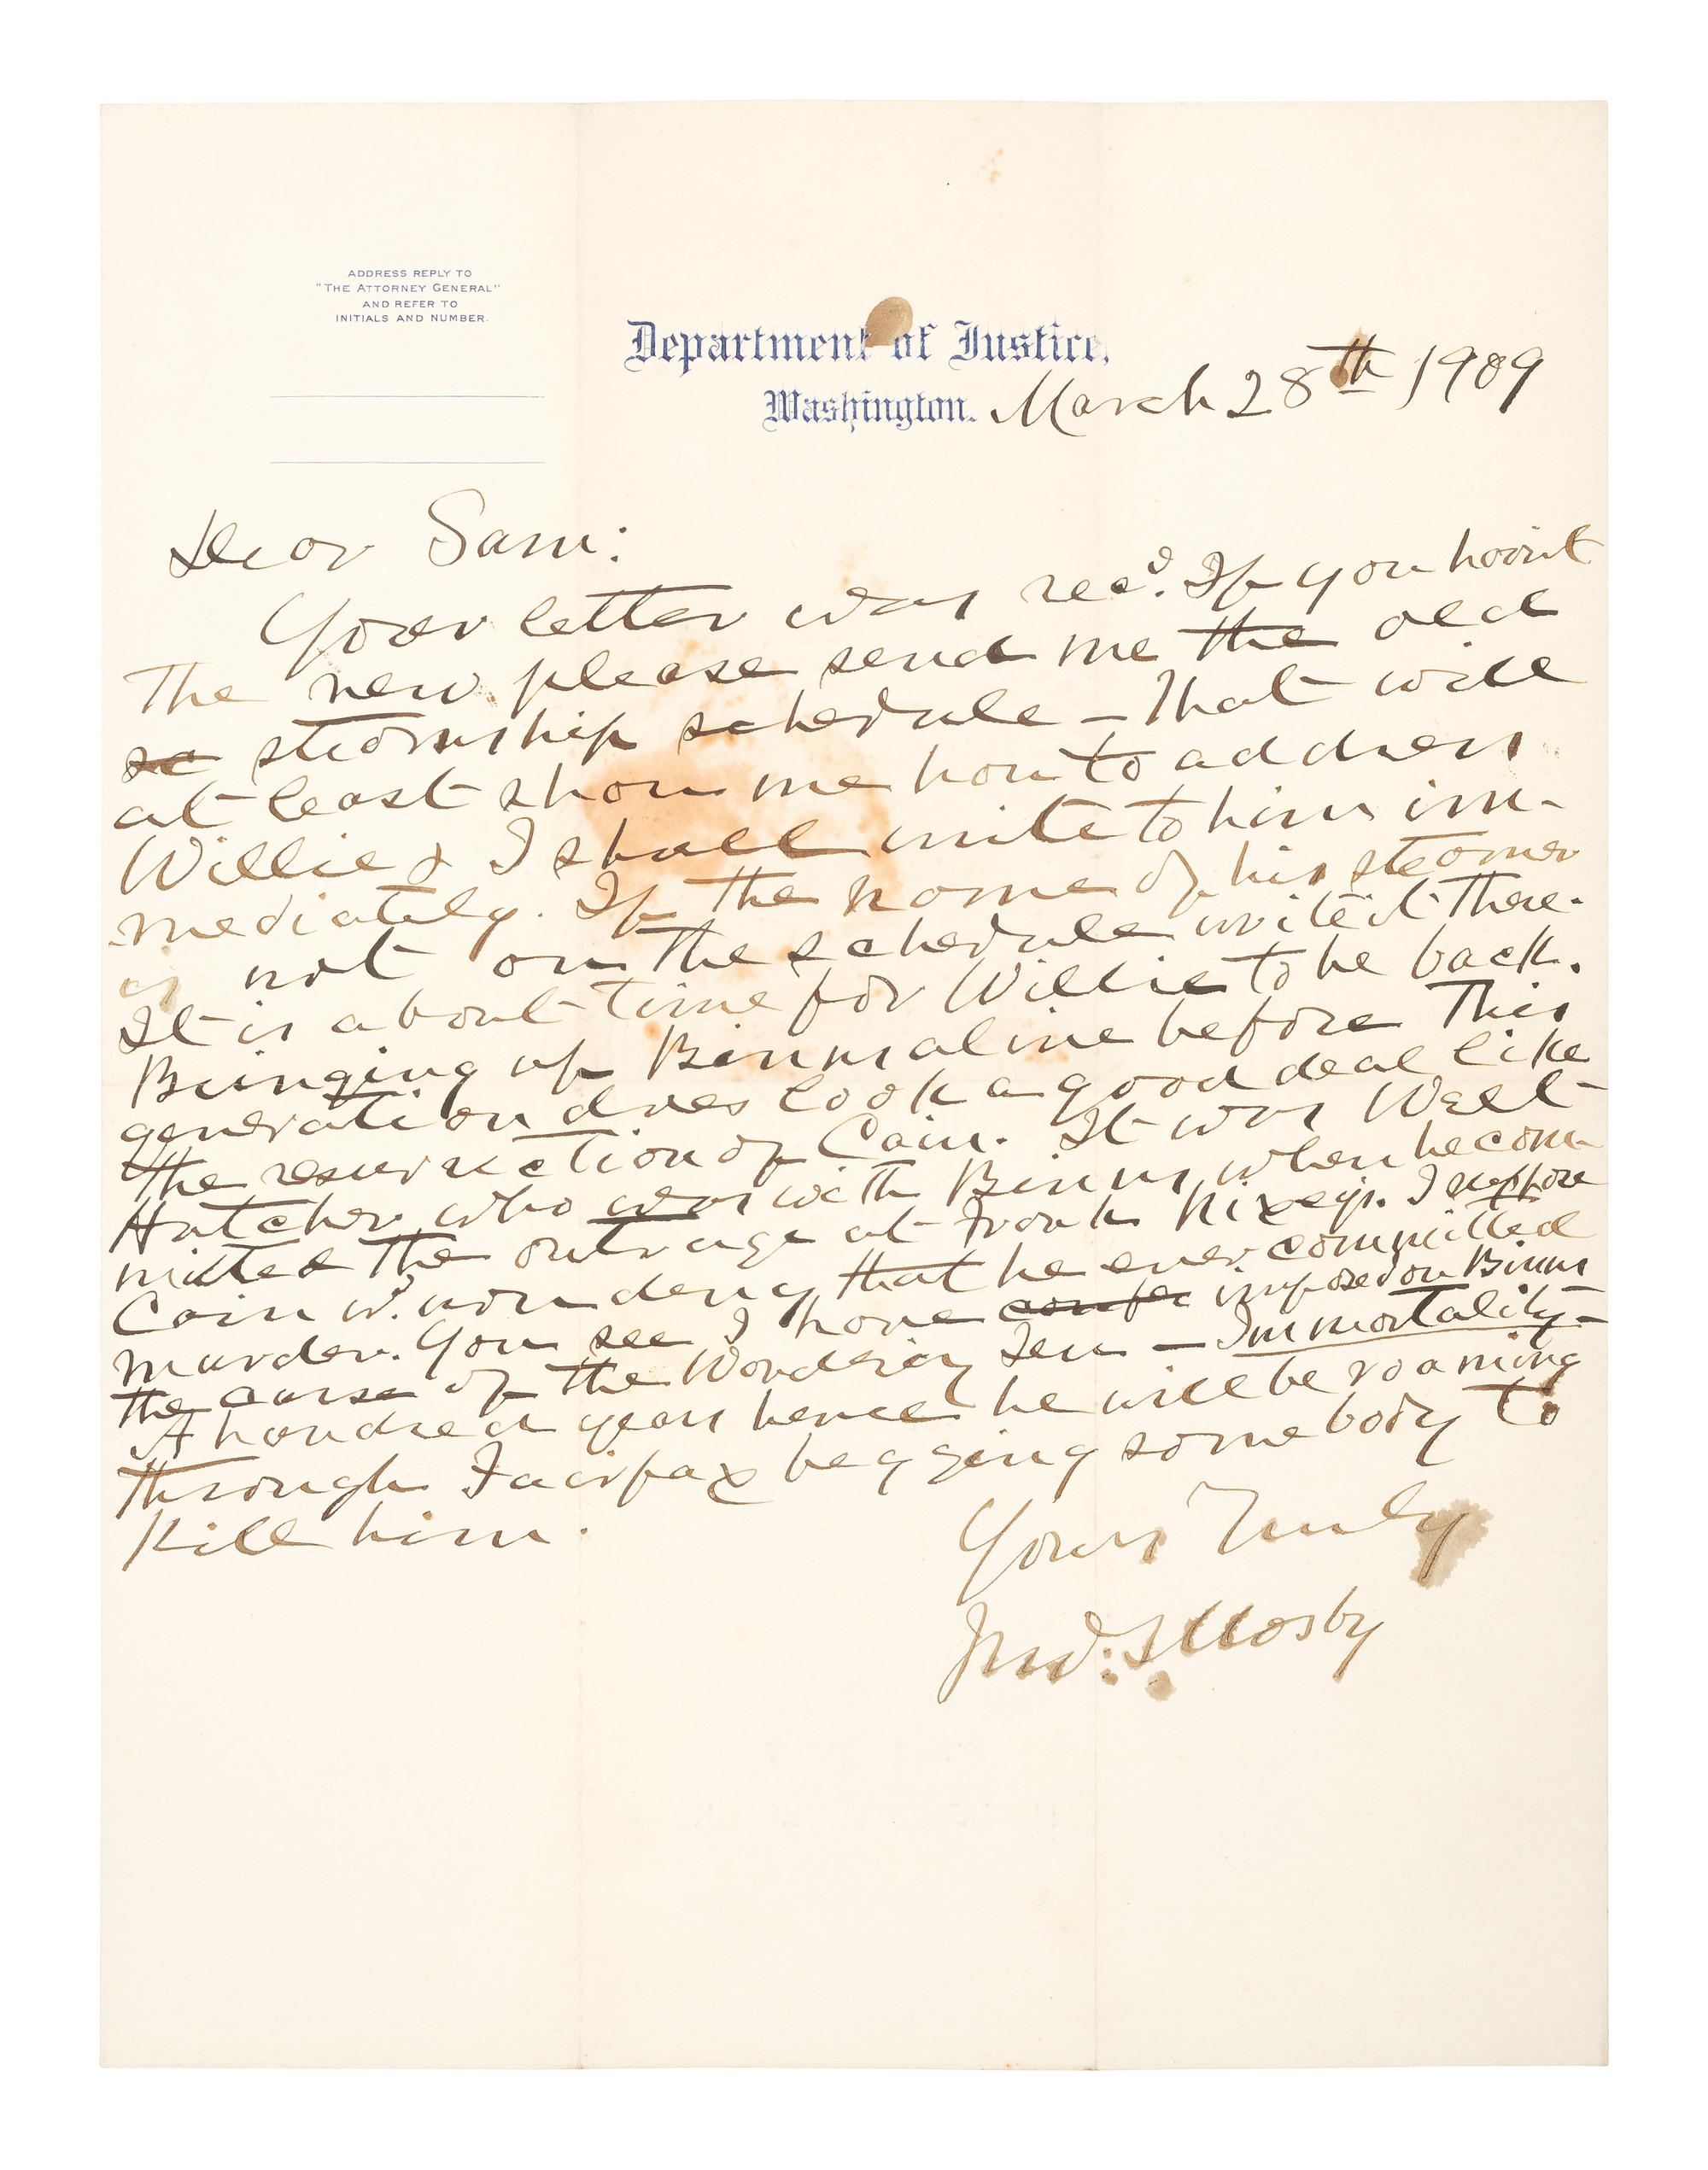 ADDRESS REPLY TO
"THE ATTORNEY GENERAL"
AND REFER TO
INITIALS AND NUMBER.
Department of Justice,
Washington. March 28th 1909
Dear Sam:
Your letter was recd. If you havn't
The new please send me the old
sc steamship schedule – That will
at least show me how to address
Willie & I shall write to him im-
mediately. If the name of his steamer
is not on the schedule write it there.
It is about time for Willie to be back.
Bringing up Binns alive before This
generation does look a good deal like
the resurrection of Cain. It was Walt
Hatcher who was with Binns when he com-
mitted the outrage at Frank Rixey's. I suppose
Cain wd. now deny that he ever committed
murder. You see I have imposed on Binns
the curse of the Wandering Jew – Immortality –
A hundred years hence he will be roaming
through Fairfax begging somebody to
Kill him.
Yours Truly
Jno: S Mosby